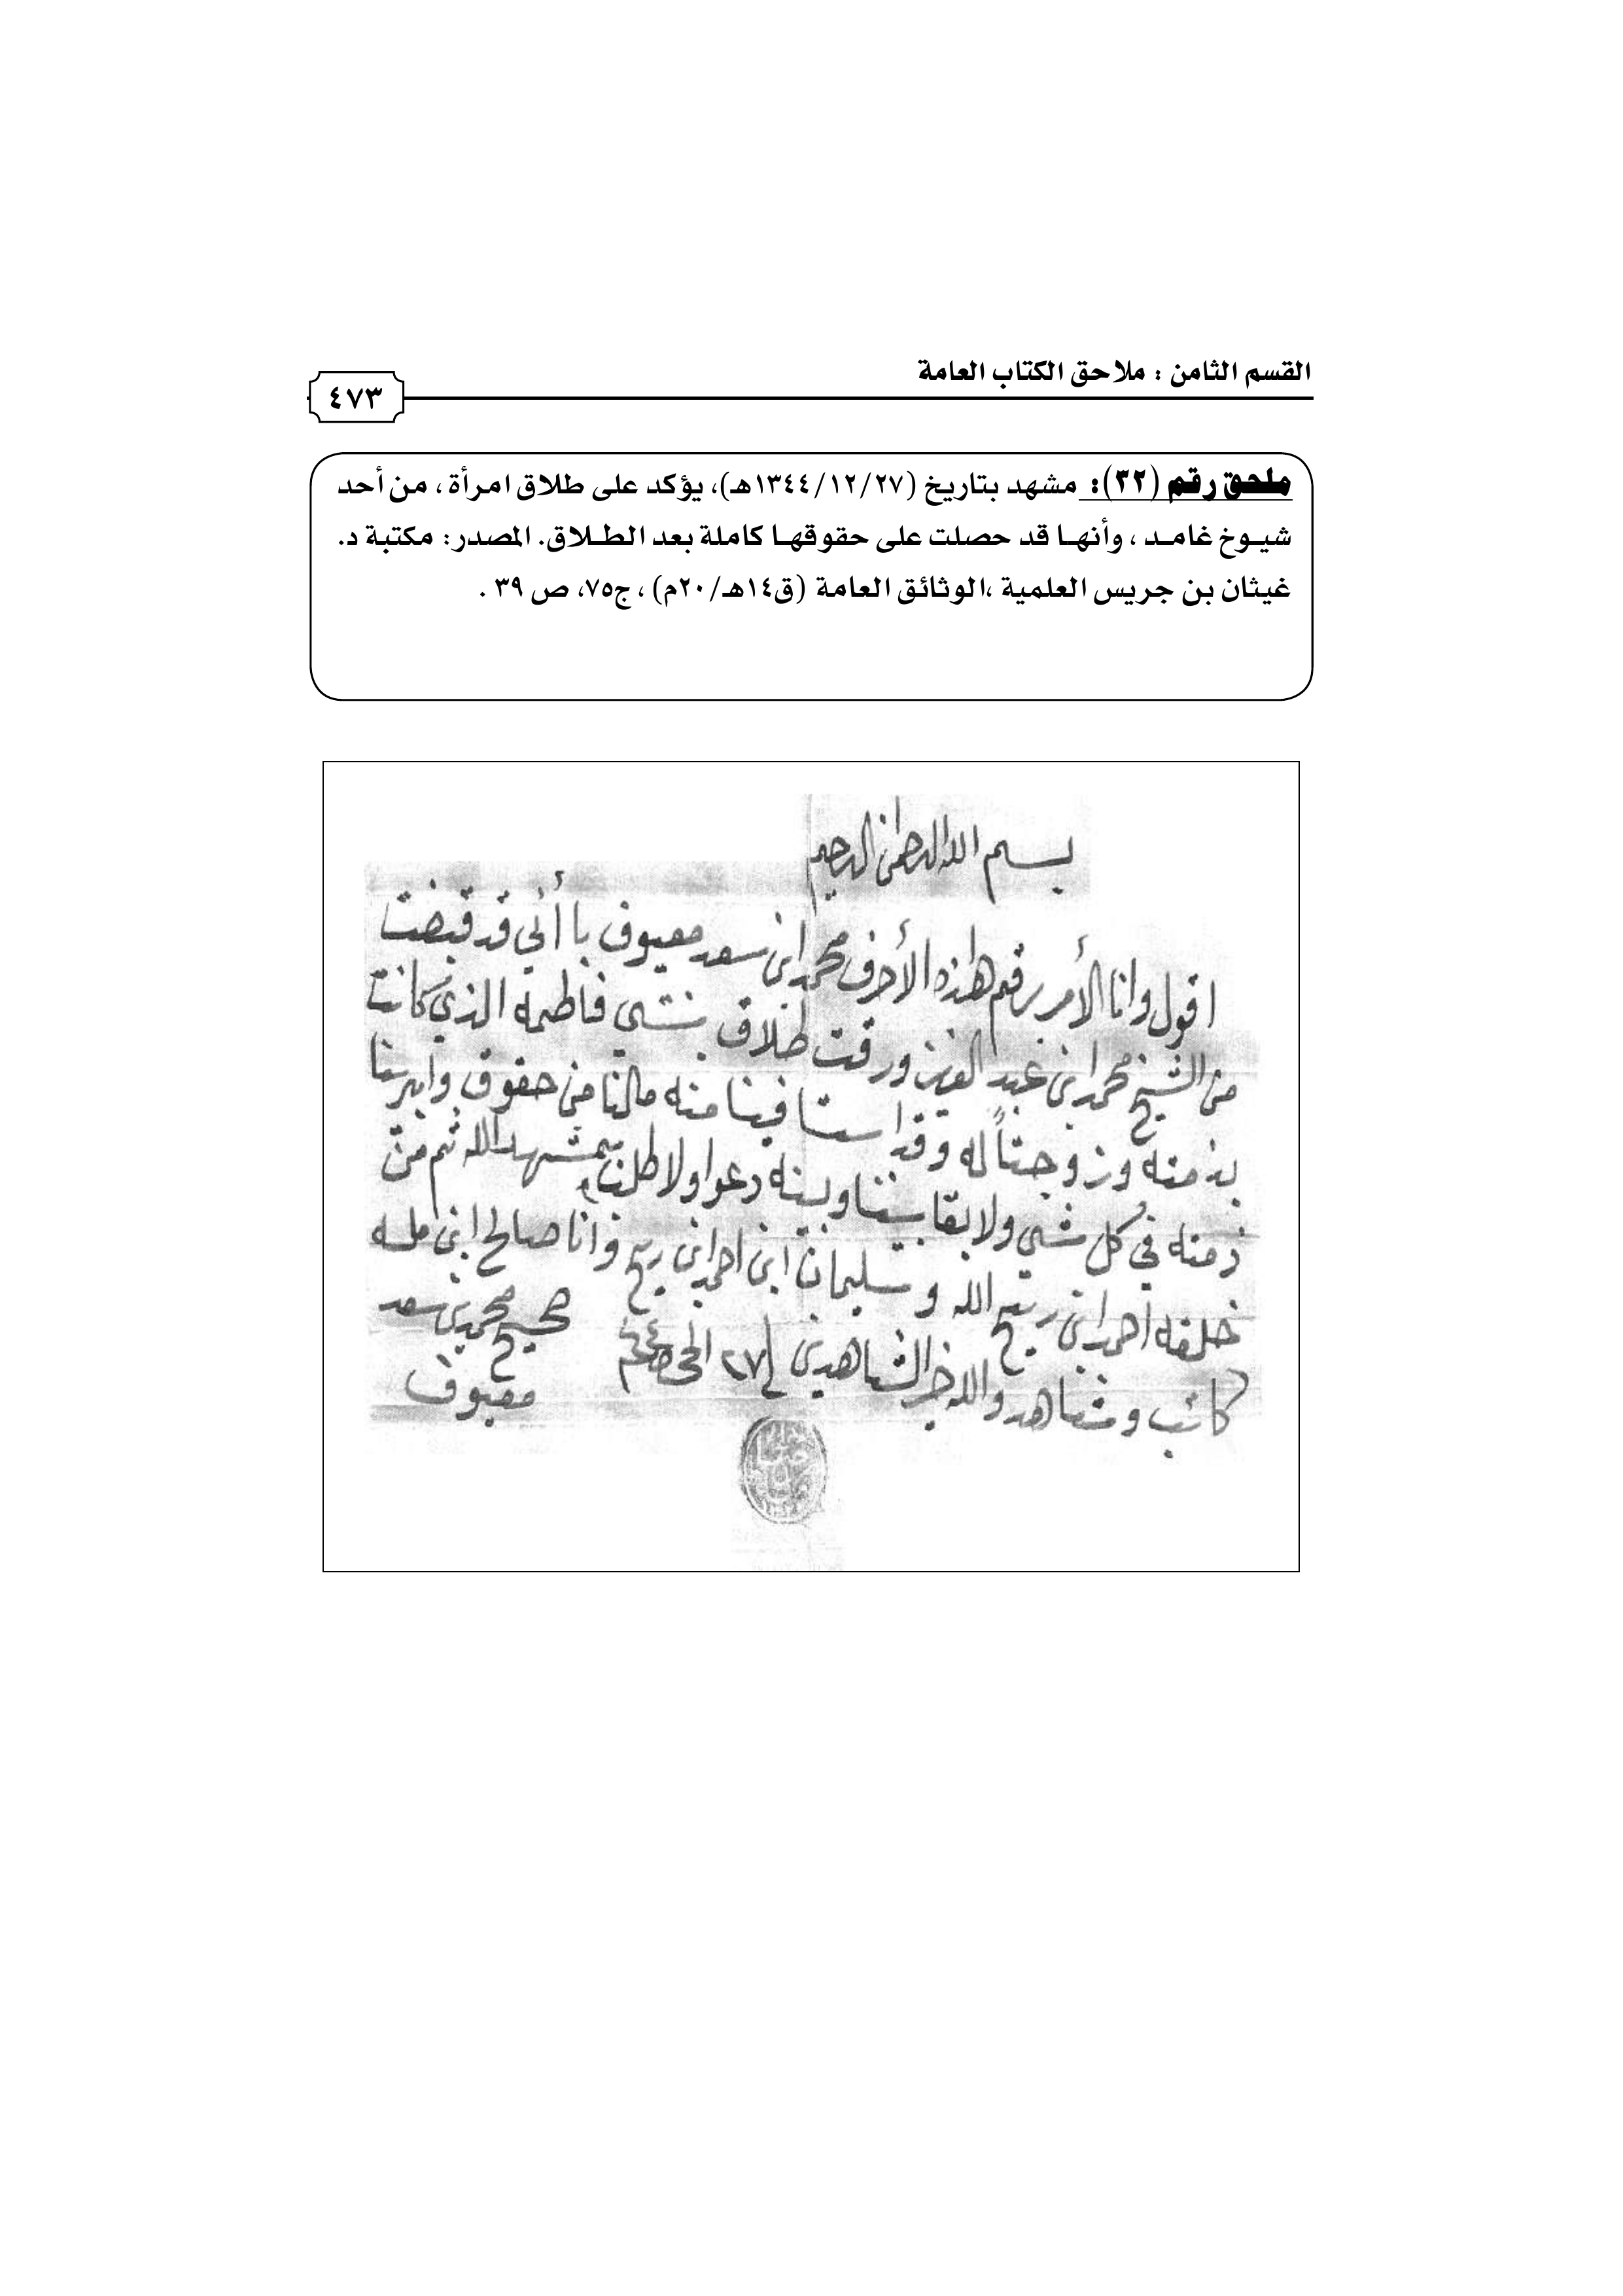 القسم الثامن : ملاحق الكتاب العامة
٤٧٣
ملحق رقم (٣٢): مشهد بتاريخ (١٣٤٤/١٢/٢٧هـ)، يؤكد على طلاق امرأة ، من أحد
شيوخ غامد ، وأنها قد حصلت على حقوقها كاملة بعد الطلاق. المصدر: مكتبة د.
غيثان بن جريس العلمية ،الوثائق العامة (ق١٤هـ/٢٠م) ، ج٧٥، ص ٣٩ .
بسم الله الرحمن الرحيم
اقول وانا الأمر برقم هاذه الأحرف محمد ابن سعد معيوف با أني قد قبضت
من الشيخ محمد ابن عبد العزيز ورقت طلاق بنتي فاطمه الذي كانت
بذمته وزوجتاً له وقد استافينا منه مالنا من حقوق وابرينا
ذمته في كل شي ولا بقا بيننا وبينه دعوا ولا طلب بمشهد الله ثم من
خلقه احمد ابن الله و سليمان ابن احمد ابن وانا صالح ابن
كاتب وشاهد والله خير الشاهدين ٢٧ الحجه ٤٤
صحيح محمد بن سعد
معيوف